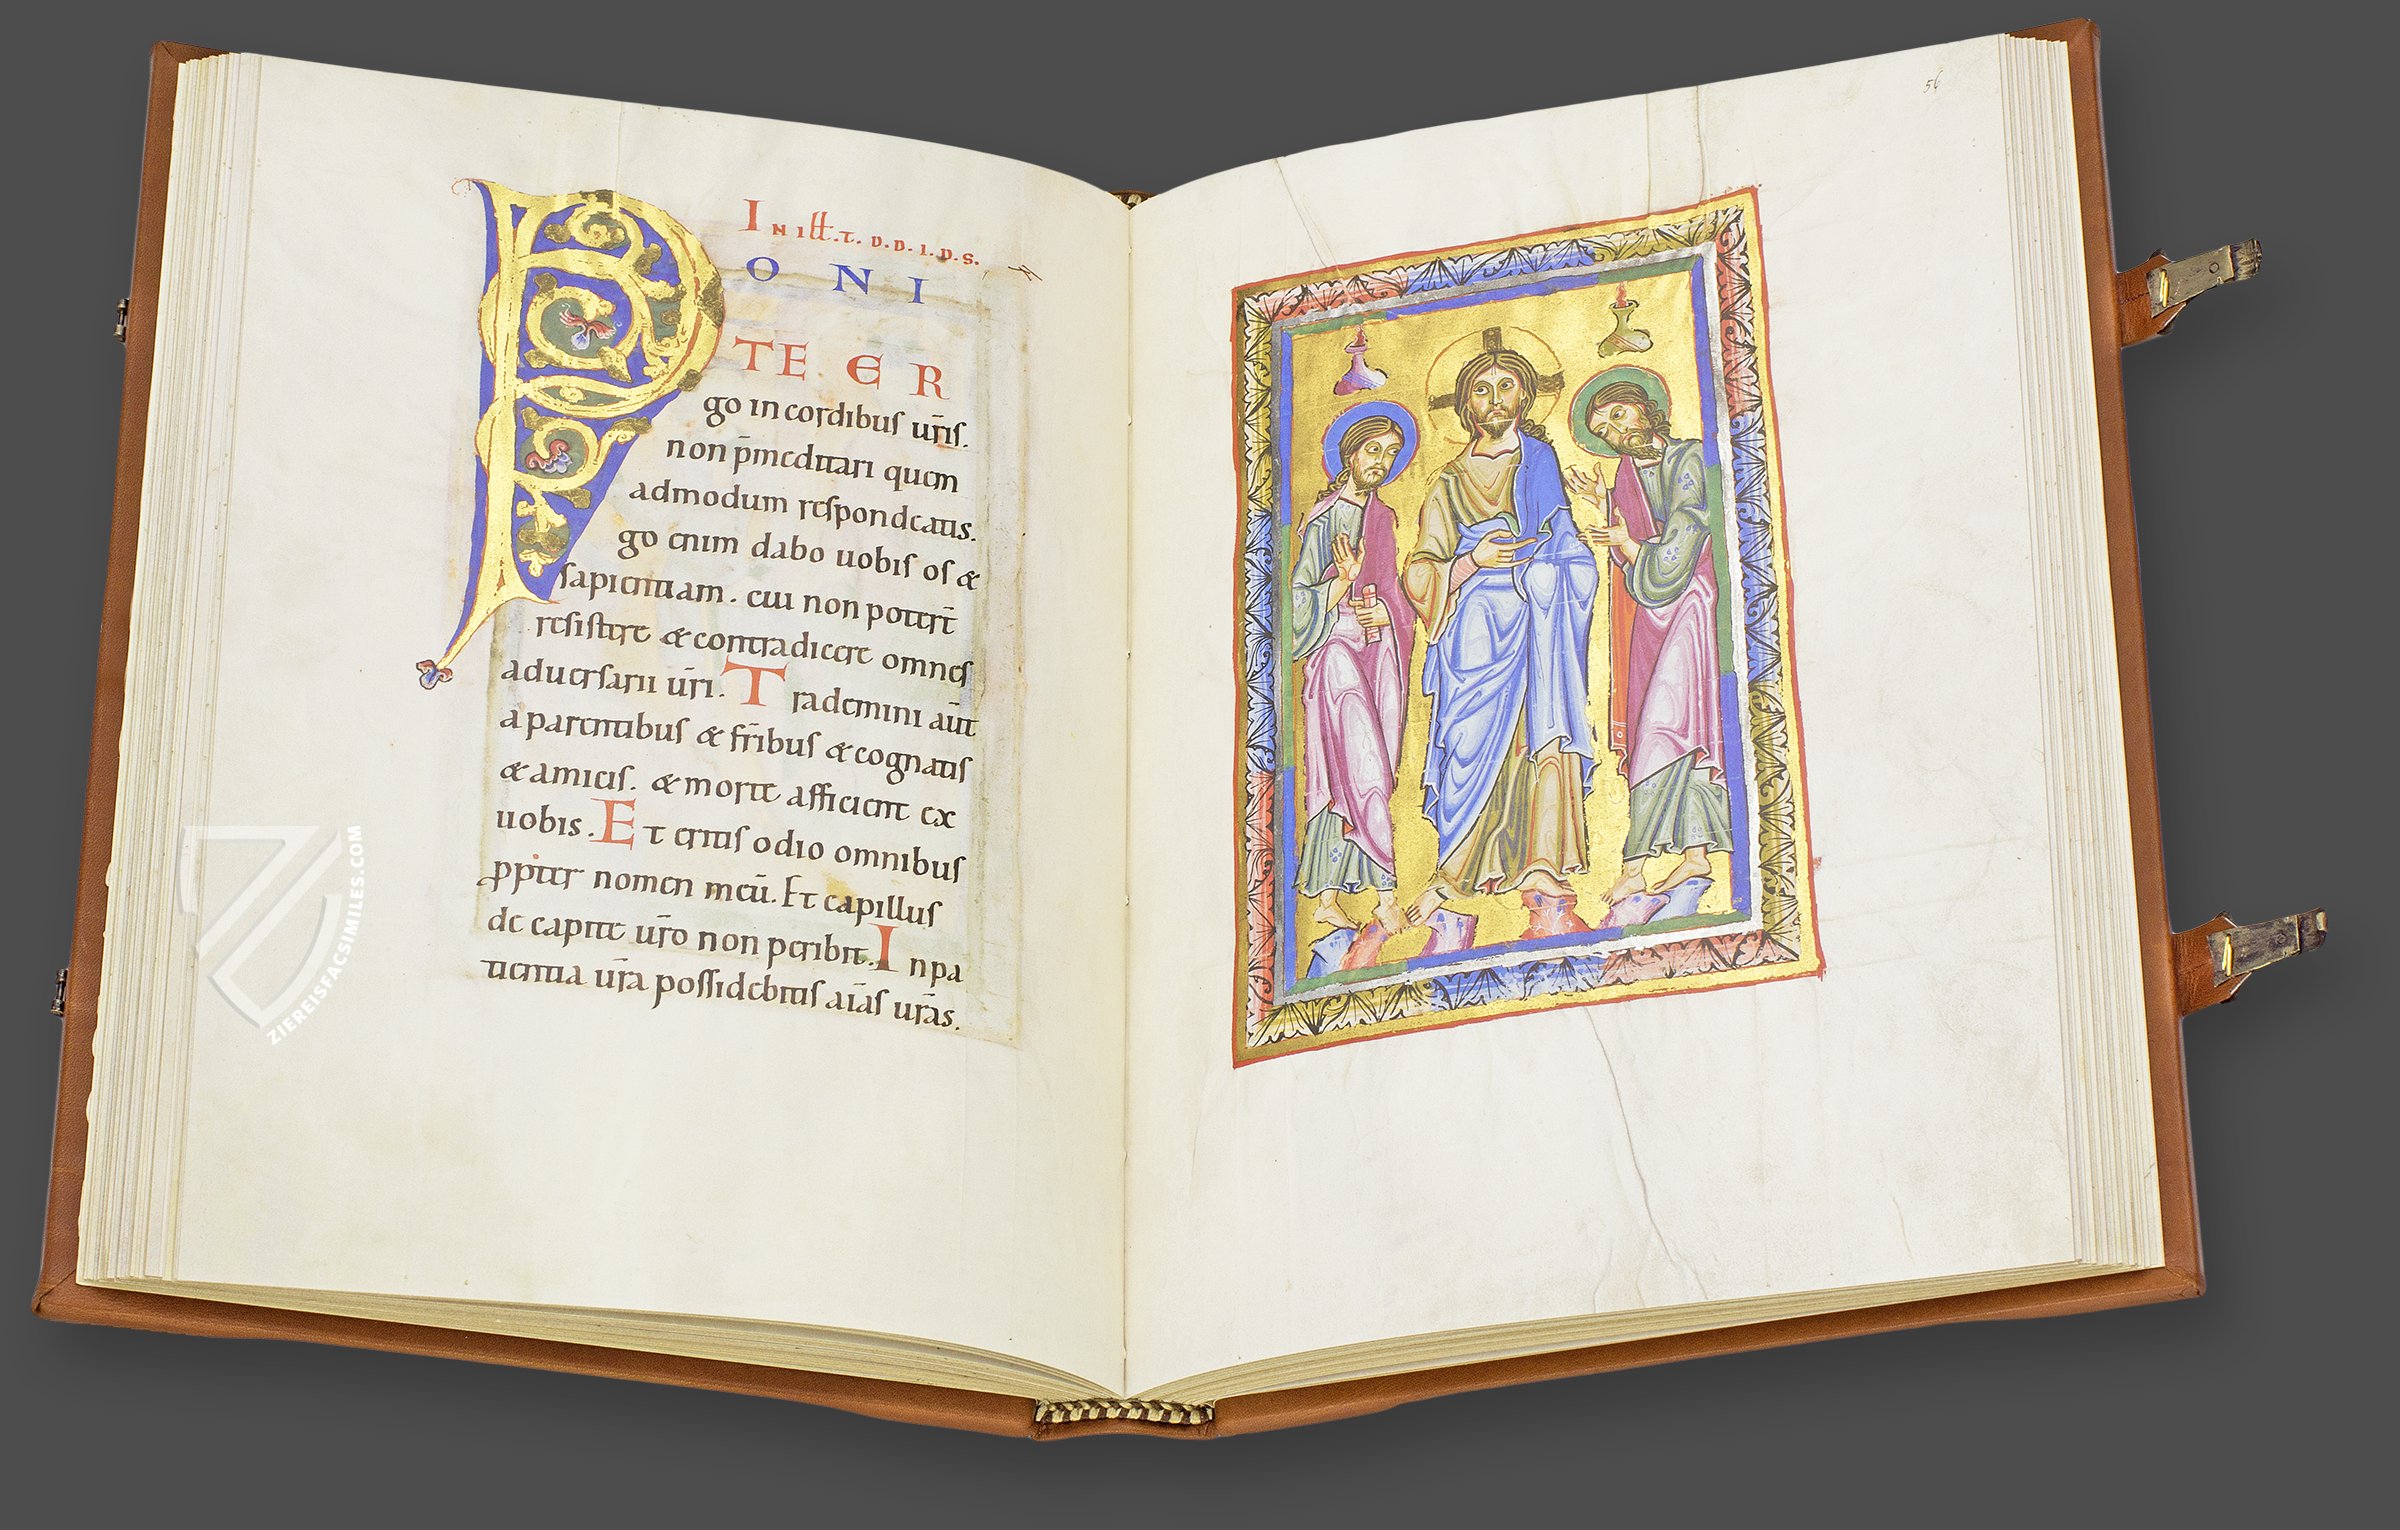 IN ILL. T. D. D. I. D. S.
PONI
TE ER
go in cordibus ur̅is.
non p̅meditari quem
admodum respondeatis.
go enim dabo uobis os &
sapientiam. cui non poter̅t
resistere & contradicere omnes
aduersarii ur̅i. Trademini au̅t
a parentibus & fr̅ibus & cognatis
& amicis. & morte afficient ex
uobis. Et eritis odio omnibus
ꝓpter nomen meu̅. Et capillus
de capite ur̅o non peribit. In pa
tientia ur̅a possidebitis ai̅as ur̅as.
56
ZIEREISFACSIMILES.COM